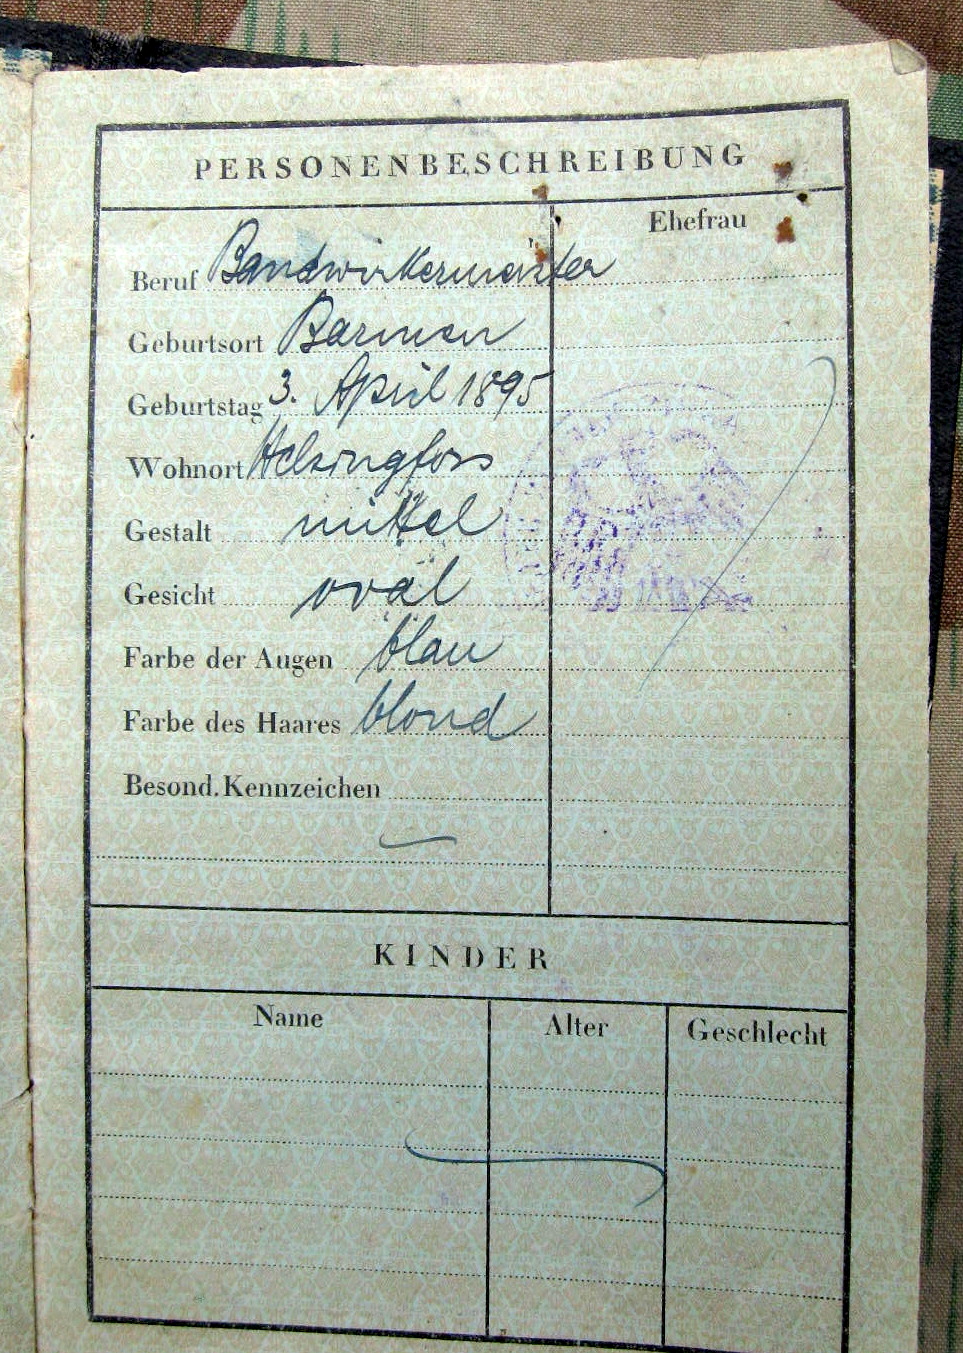 PERSONENBESCHREIBUNG
Ehefrau
Beruf Bandwirkermeister
Geburtsort Barmen
Geburtstag 3. April 1895
Wohnort Helsingfors
Gestalt mittel
Gesicht oval
Farbe der Augen blau
Farbe des Haares blond
Besond. Kennzeichen
KINDER
Name Alter Geschlecht